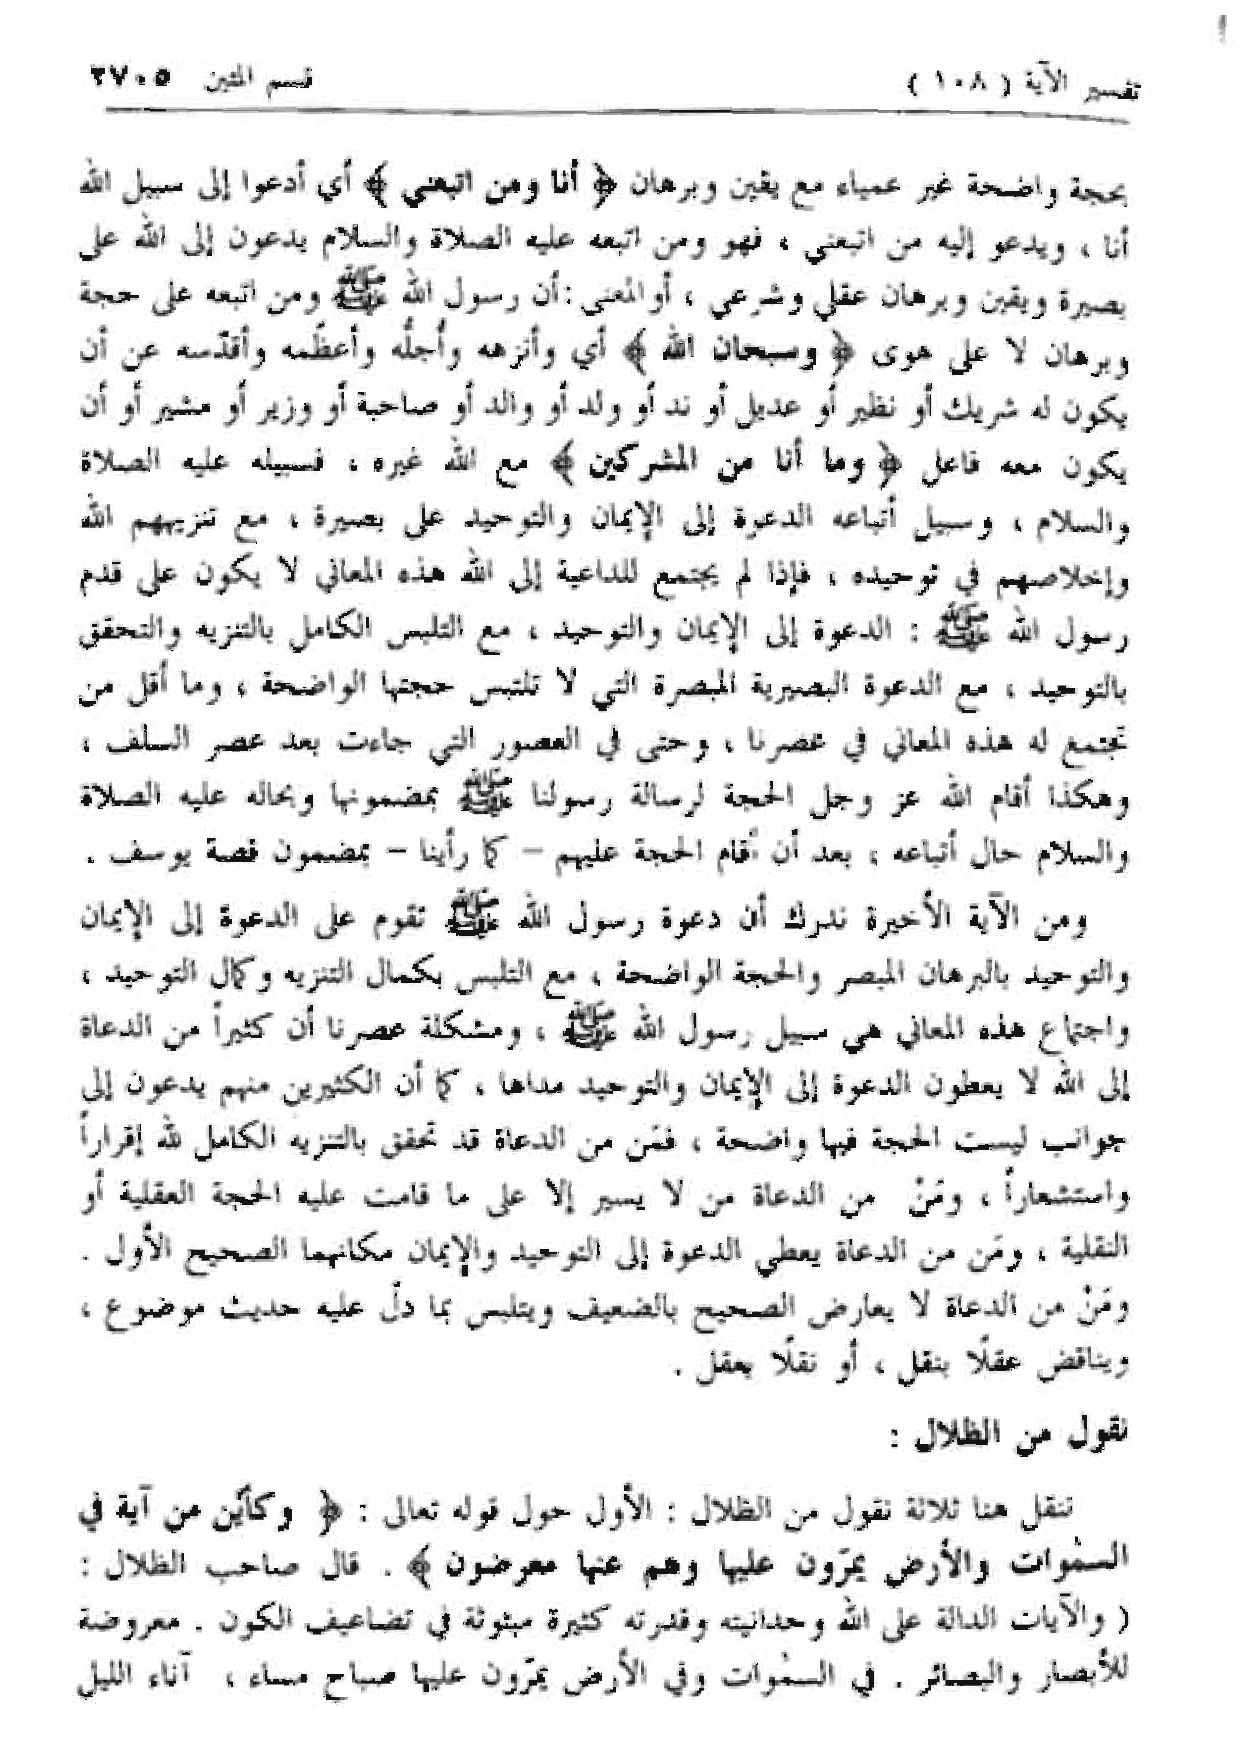 تفسير الآية ( ١٠٨ ) قسم المئين ٢٧٠٥
بحجة واضحة غير عمياء مع يقين وبرهان ﴿ أنا ومن اتبعني ﴾ أي أدعوا إلى سبيل الله
أنا ، ويدعو إليه من اتبعني ، فهو ومن اتبعه عليه الصلاة والسلام يدعون إلى الله على
بصيرة ويقين وبرهان عقلي وشرعي ، أو المعنى : أن رسول الله ﷺ ومن اتبعه على حجة
وبرهان لا على هوى ﴿ وسبحان الله ﴾ أي وأنزهه وأُجلُّه وأعظّمه وأقدّسه عن أن
يكون له شريك أو نظير أو عديل أو ند أو ولد أو والد أو صاحبة أو وزير أو مشير أو أن
يكون معه فاعل ﴿ وما أنا من المشركين ﴾ مع الله غيره ، فسبيله عليه الصلاة
والسلام ، وسبيل أتباعه الدعوة إلى الإيمان والتوحيد على بصيرة ، مع تنزيههم الله
وإخلاصهم في توحيده ، فإذا لم يجتمع للداعية إلى الله هذه المعاني لا يكون على قدم
رسول الله ﷺ : الدعوة إلى الإيمان والتوحيد ، مع التلبس الكامل بالتنزيه والتحقق
بالتوحيد ، مع الدعوة البصيرية المبصرة التي لا تلتبس حجتها الواضحة ، وما أقل من
تجتمع له هذه المعاني في عصرنا ، وحتى في العصور التي جاءت بعد عصر السلف ،
وهكذا أقام الله عز وجل الحجة لرسالة رسولنا ﷺ بمضمونها وبحاله عليه الصلاة
والسلام حال أتباعه ، بعد أن أقام الحجة عليهم – كما رأينا – بمضمون قصة يوسف .
ومن الآية الأخيرة ندرك أن دعوة رسول الله ﷺ تقوم على الدعوة إلى الإيمان
والتوحيد بالبرهان المبصر والحجة الواضحة ، مع التلبس بكمال التنزيه وكمال التوحيد ،
واجتماع هذه المعاني هي سبيل رسول الله ﷺ ، ومشكلة عصرنا أن كثيراً من الدعاة
إلى الله لا يعطون الدعوة إلى الإيمان والتوحيد مداها ، كما أن الكثيرين منهم يدعون إلى
جوانب ليست الحجة فيها واضحة ، فمَن من الدعاة قد تحقق بالتنزيه الكامل لله إقراراً
واستشعاراً ، ومَنْ من الدعاة من لا يسير إلا على ما قامت عليه الحجة العقلية أو
النقلية ، ومَن من الدعاة يعطي الدعوة إلى التوحيد والإيمان مكانهما الصحيح الأول .
ومَنْ من الدعاة لا يعارض الصحيح بالضعيف ويتلبس بما دلّ عليه حديث موضوع ،
ويناقض عقلًا بنقل ، أو نقلًا بعقل .
نقول من الظلال :
ننقل هنا ثلاثة نقول من الظلال : الأول حول قوله تعالى : ﴿ وكأيّن من آية في
السمٰوات والأرض يمرّون عليها وهم عنها معرضون ﴾ . قال صاحب الظلال :
( والآيات الدالة على الله وحدانيته وقدرته كثيرة مبثوثة في تضاعيف الكون . معروضة
للأبصار والبصائر . في السمٰوات وفي الأرض يمرّون عليها صباح مساء ، آناء الليل